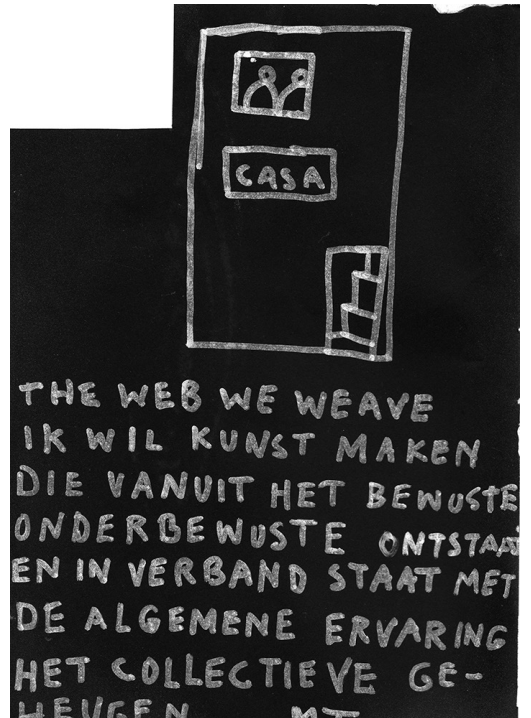 CASA
THE WEB WE WEAVE
IK WIL KUNST MAKEN
DIE VANUIT HET BEWUSTE
ONDERBEWUSTE ONTSTAAT
EN IN VERBAND STAAT MET
DE ALGEMENE ERVARING
HET COLLECTIEVE GE-
HEUGEN